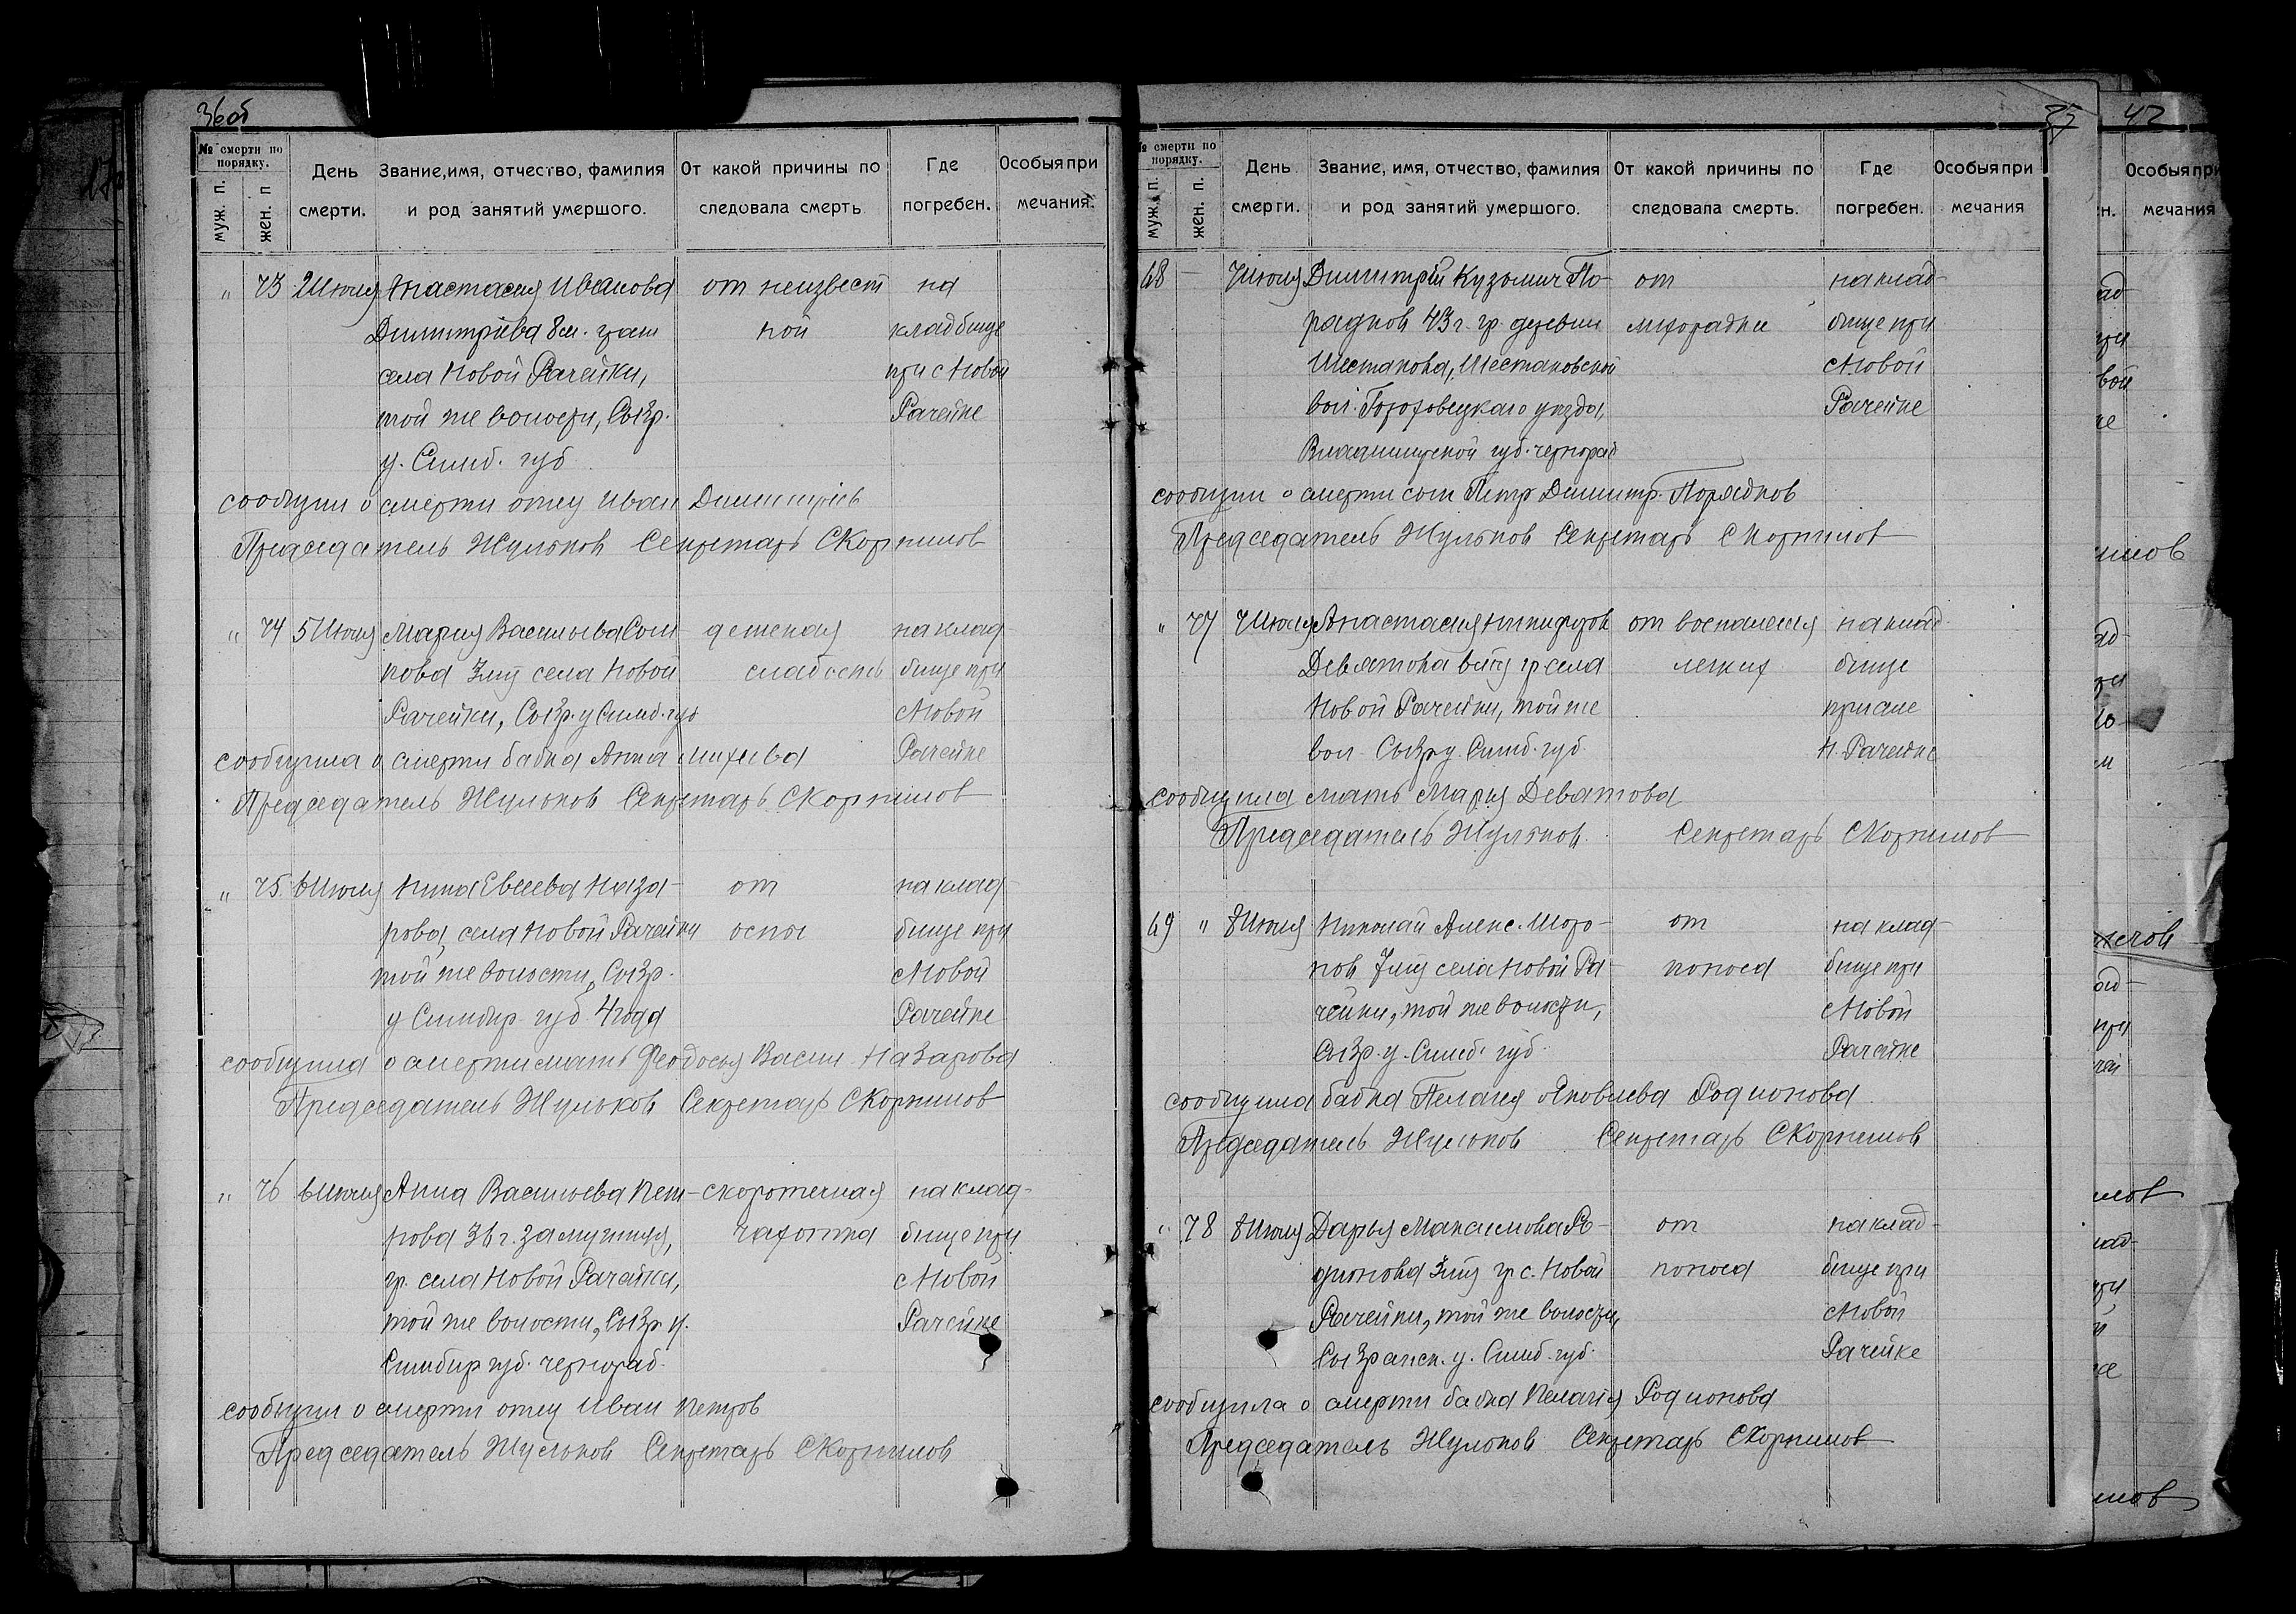 36об
№ смерти по порядку.
муж. п.
жен. п
День смерти.
Звание, имя, отчество, фамилия и род занятий умершого.
От какой причины последовала смерть
Где погребен.
Особыя примечания.
„ 73 2 Июля Анастасия Иванова от неизвест на
Димитріева 8 м. граж ной кладбище
села Новой Рачейки, при с Новой
той же волости, Сызр. Рачейке
у. Симб. губ
сообщил о смерти отец Иван Димитріев
Председатель Жульков Секретарь СКорнилов
„ 74 5 Июля Мария Васильева Сот- детская на клад-
кова 3 мц села Новой слабость бище при
Рачейки, Сызр. у Симб. губ с Новой
сообщила о смерти бабка Анна Михеева Рачейке
Председатель Жульков Секретарь СКорнилов
„ 75. 6 Июля Нина Евсеева Наза- от на клад-
рова, села Новой Рачейки оспы бище при
той же волости, Сызр. с Новой
у Симбир губ 4 года Рачейке
сообщила о смерти мать Феодосья Васил. Назарова
Председатель Жульков Секретарь СКорнилов
„ 76 6 Июля Анна Васильева Пет- скоротечная на клад-
рова 36 г. замужняя, чахотка бище при
гр. села Новой Рачейки, с Новой
той же волости, Сызр у. Рачейке
Симбир губ. чернораб.
сообщил о смерти отец Иван Петров
Председатель Жульков Секретарь СКорнилов
37
№ смерти по порядку.
муж. п.
жен. п.
День смерти.
Звание, имя, отчество, фамилия и род занятий умершого.
От какой причины последовала смерть.
Где погребен.
Особыя примечания
68 — 7 Июля Димитрій Кузьмич По- от на клад-
радков 73 г. гр. деревни лихорадки бище при
Шестакова, Шестаковской с Новой
вол. Гороховецкаго уезда, Рачейке
Владимирской губ. чернораб
сообщил о смерти сын Петр Димитр. Порядков
Председатель Жульков Секретарь СКорнилов
„ 77 7 Июля Анастасия Никифоров от воспаления на клад-
Девятова гр села легких бище
Новой Рачейки, той же при селе
вол. Сызр у. Симб. губ. Н. Рачейке
сообщила мать Мария Девятова
Председатель Жульков. Секретарь СКорнилов
69 „ 8 Июля Николай Алекс. Шоро- от на клад-
ков 7 мц села Новой Ра- поноса бище при
чейки, той же волости, с Новой
Сызр. у. Симб. губ. Рачейке
сообщила бабка Пелагея Яковлева Родионова
Председатель Жульков Секретарь СКорнилов
„ 78 8 Июля Дарья Максимова Ро- от на клад-
дионова 3 мц гр с. Новой поноса бище при
Рачейки, той же волости, с Новой
Сызранск. у. Симб. губ. Рачейке
сообщила о смерти бабка Пелагея Родионова
Председатель Жульков Секретарь СКорнилов
42
Особыя при
мечания